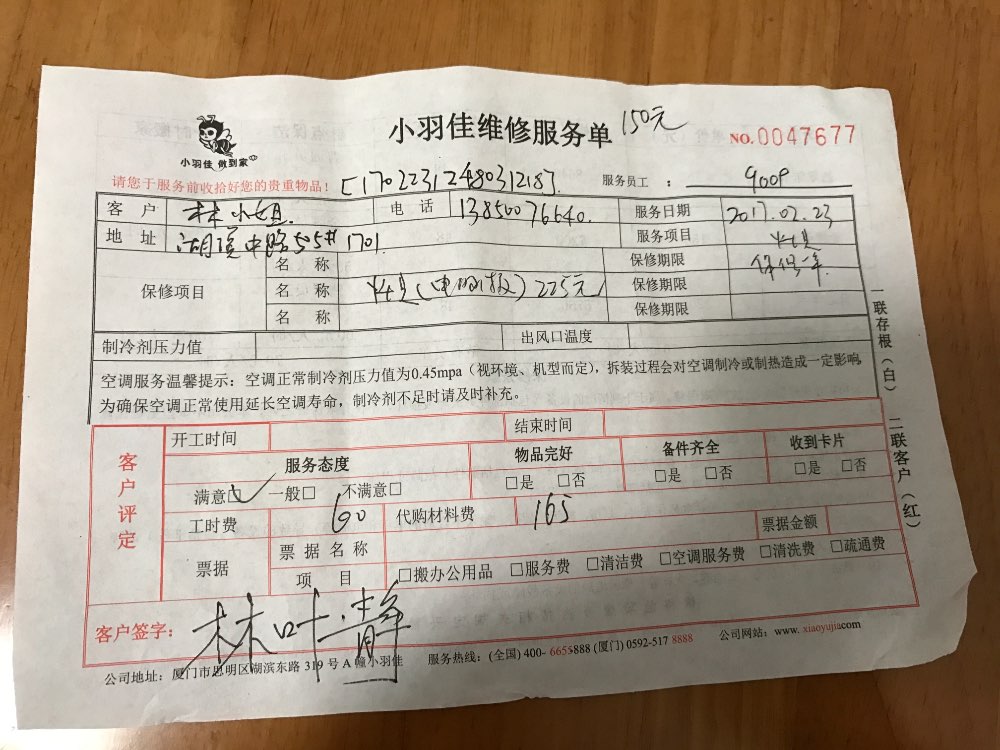 小羽佳维修服务单 150元
NO.0047677
小羽佳 做到家
请您于服务前收拾好您的贵重物品！ [1702231248031218]. 服务员工 ：
客 户 林小姐. 电 话 13850076640. 服务日期 2017.02.23
地 址 湖滨中路505# 1701 服务项目
保修项目
名 称 保修期限
名 称 (电脑板) 225元 保修期限
名 称 保修期限
制冷剂压力值 出风口温度
空调服务温馨提示：空调正常制冷剂压力值为0.45mpa（视环境、机型而定），拆装过程会对空调制冷或制热造成一定影响
为确保空调正常使用延长空调寿命，制冷剂不足时请及时补充。
一联存根（白） 二联客户（红）
客户评定
开工时间 结束时间
服务态度 物品完好 备件齐全 收到卡片
满意☑ 一般□ 不满意□ □是 □否 □是 □否 □是 □否
工时费 60 代购材料费 165 票据金额
票据
票据名称
项 目 □搬办公用品 □服务费 □清洁费 □空调服务费 □清洗费 □疏通费
客户签字： 林叶静
公司地址：厦门市思明区湖滨东路 319 号 A 幢小羽佳 服务热线：(全国) 400- 6655888 (厦门) 0592-517 8888 公司网站：www. xiaoyujia.com